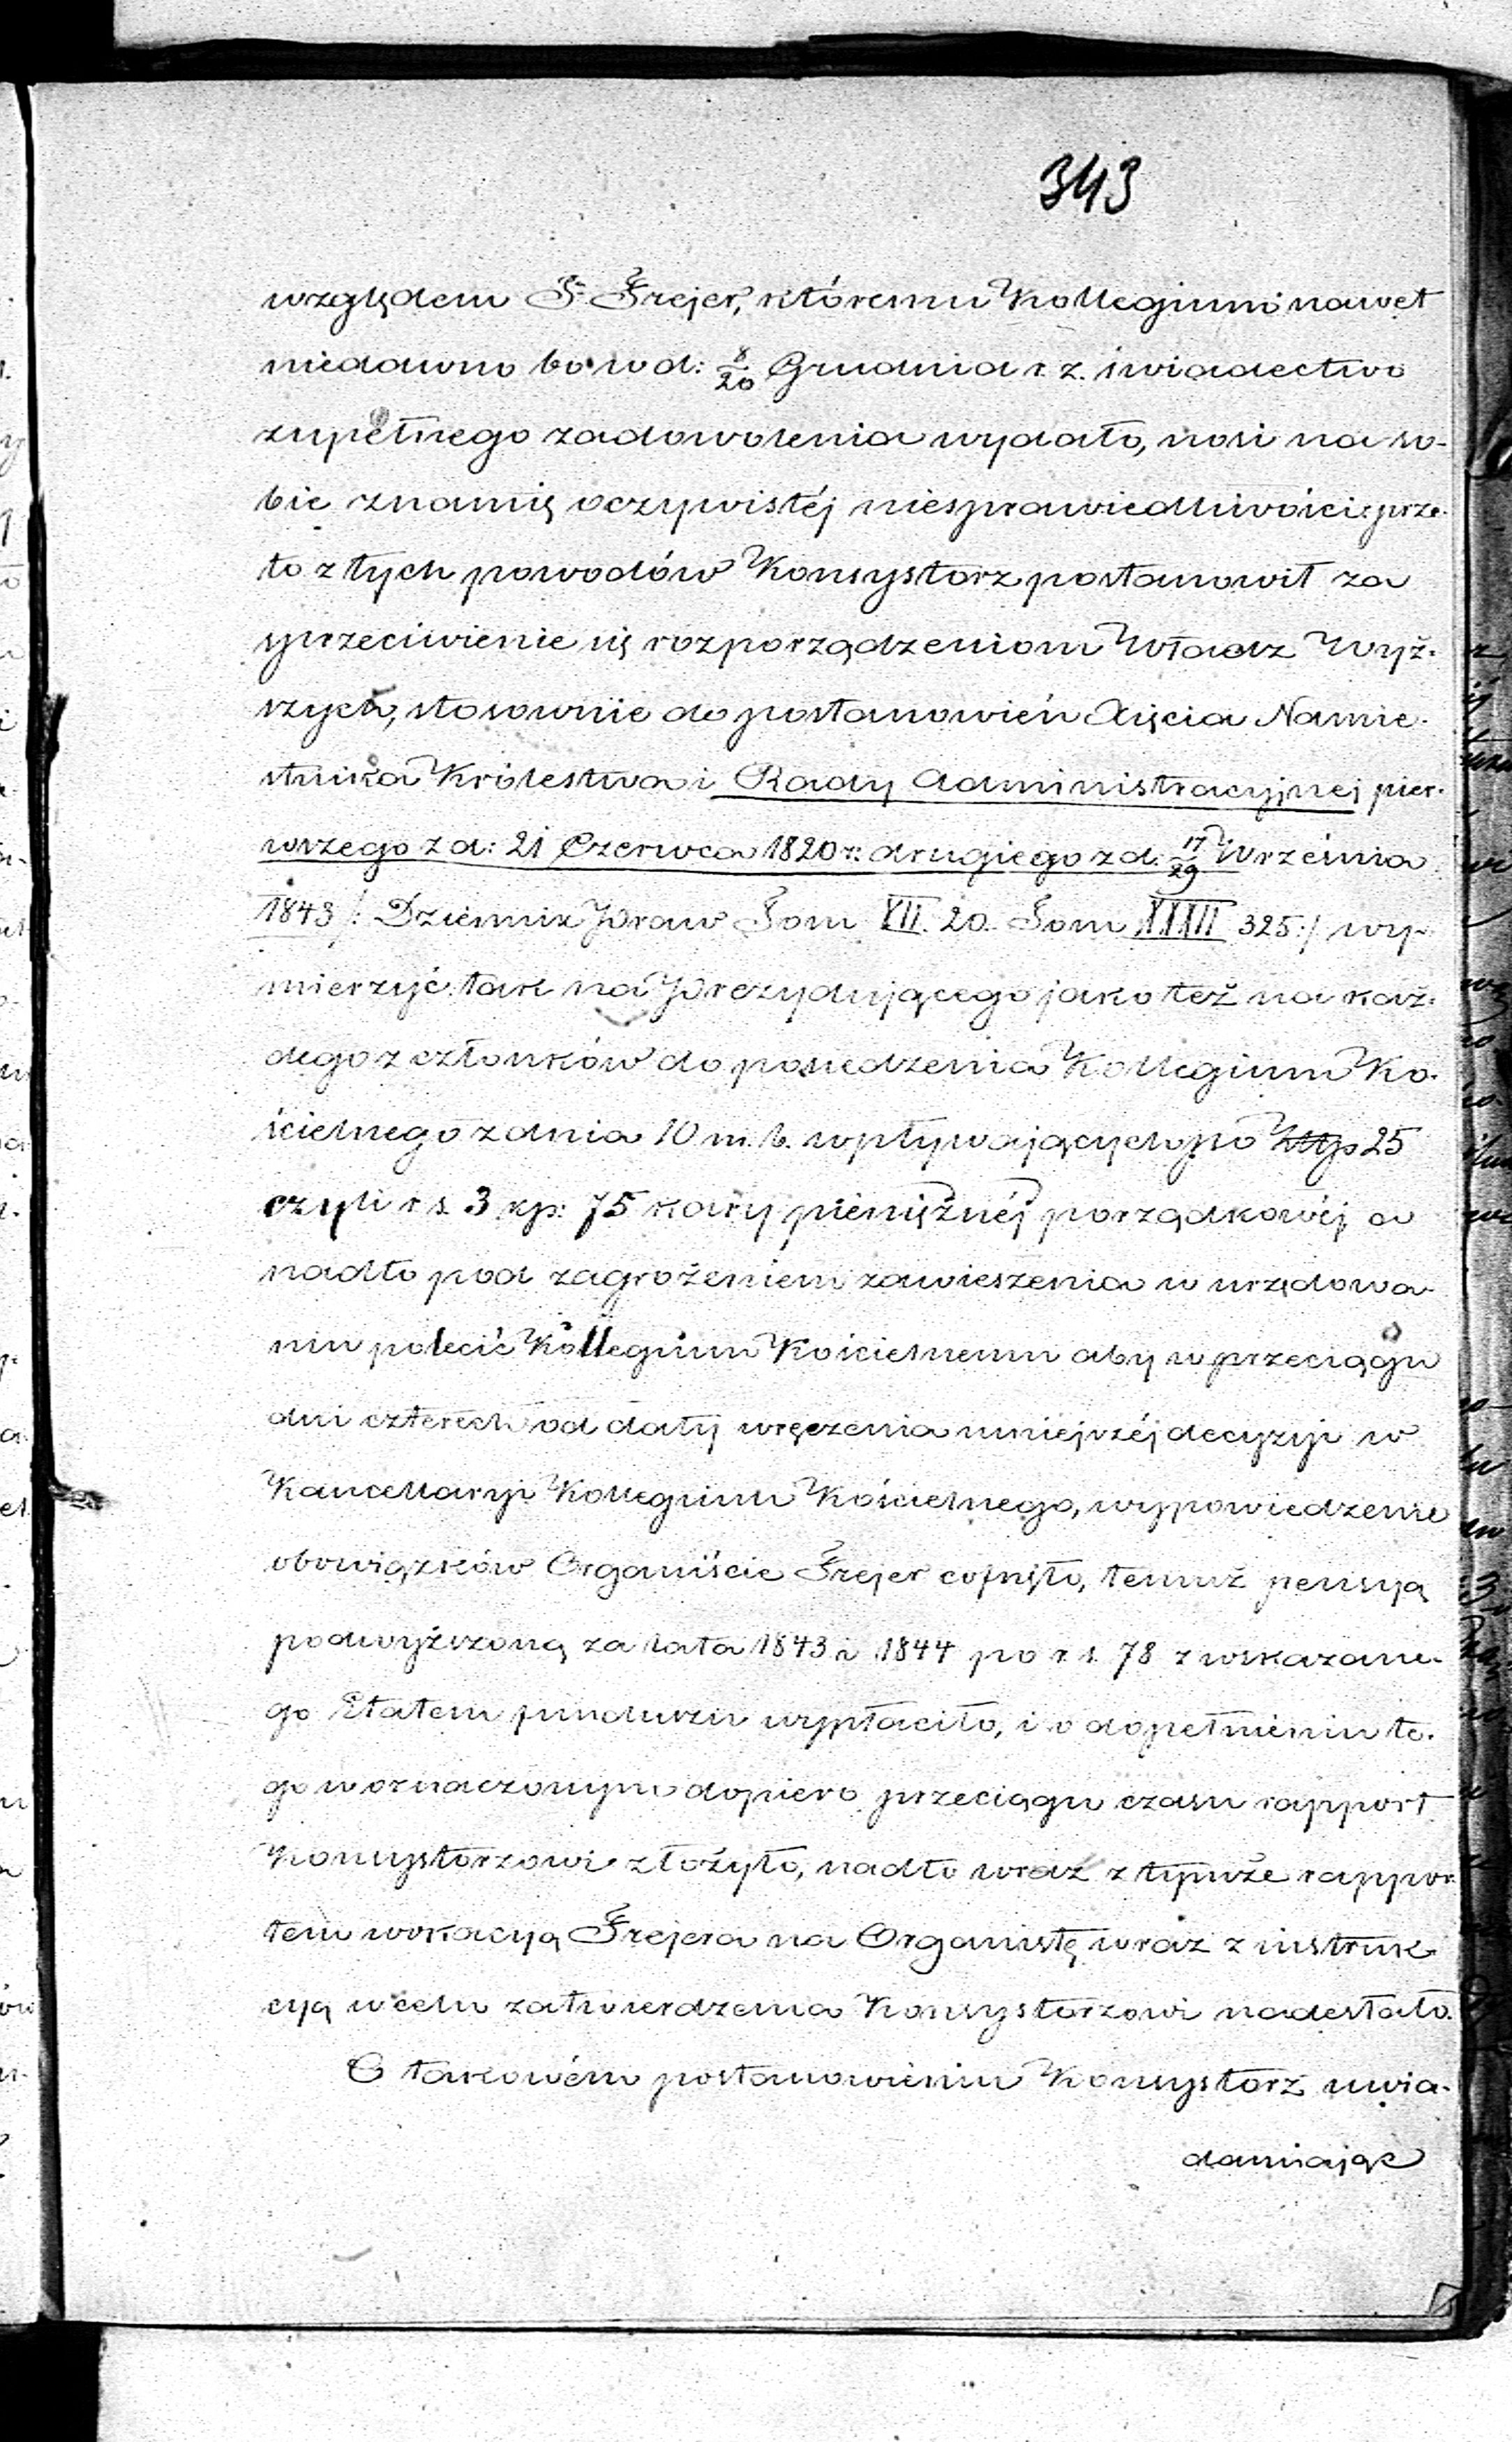 343
względem P. Frejer, któremu Kollegium nawet
niedawno bo w d: 8/20 Grudnia r. z. świadectwo
zupełnego zadowolenia wydało, nosi na so-
bie znamię oczywistéj niesprawiedliwości; prze-
to z tych powodów Konsystorz postanowił za
sprzeciwienie się rozporządzeniom Władz Wyż-
szych, stosownie do postanowień Xięcia Namie-
stnika Królestwa i Rady Administracyjnej pier-
wszego z d: 21 Czerwca 1820 r. drugiego z d. 17/29 Września
1843 /: Dziennik Praw Tom VII. 20. Tom XXXII 325 :/ wy-
mierzyć tak na Prezydującego jako też na każ-
dego z członków do posiedzenia Kollegium Ko-
ścielnego z dnia 10 m. b. wpływających po Złtp 25
czyli r s 3 kp: 75 kary pieniężnéj porządkowéj, a
nadto pod zagrożeniem zawieszenia w urzędowa-
niu polecić Kollegium Kościelnemu aby w przeciągu
dni czterech od daty wręczenia niniejszéj decyzyi w
Kancellaryi Kollegium Kościelnego, wypowiedzenie
obowiązków Organiście Frejer cofnęło, temuż pensyą
podwyższoną za lata 1843 i 1844 po r. s. 78 z wskazane-
go Etatem funduszu wypłaciło, i o dopełnieniu te-
go w oznaczonym dopiero przeciągu czasu rapport
Konsystorzowi złożyło, nadto wraz z tymże rappor-
tem wokacyą Frejera na Organistę wraz z instruk-
cyą w celu zatwierdzenia Konsystorzowi nadesłało.
O takowém postanowieniu Konsystorz uwia-
damiając